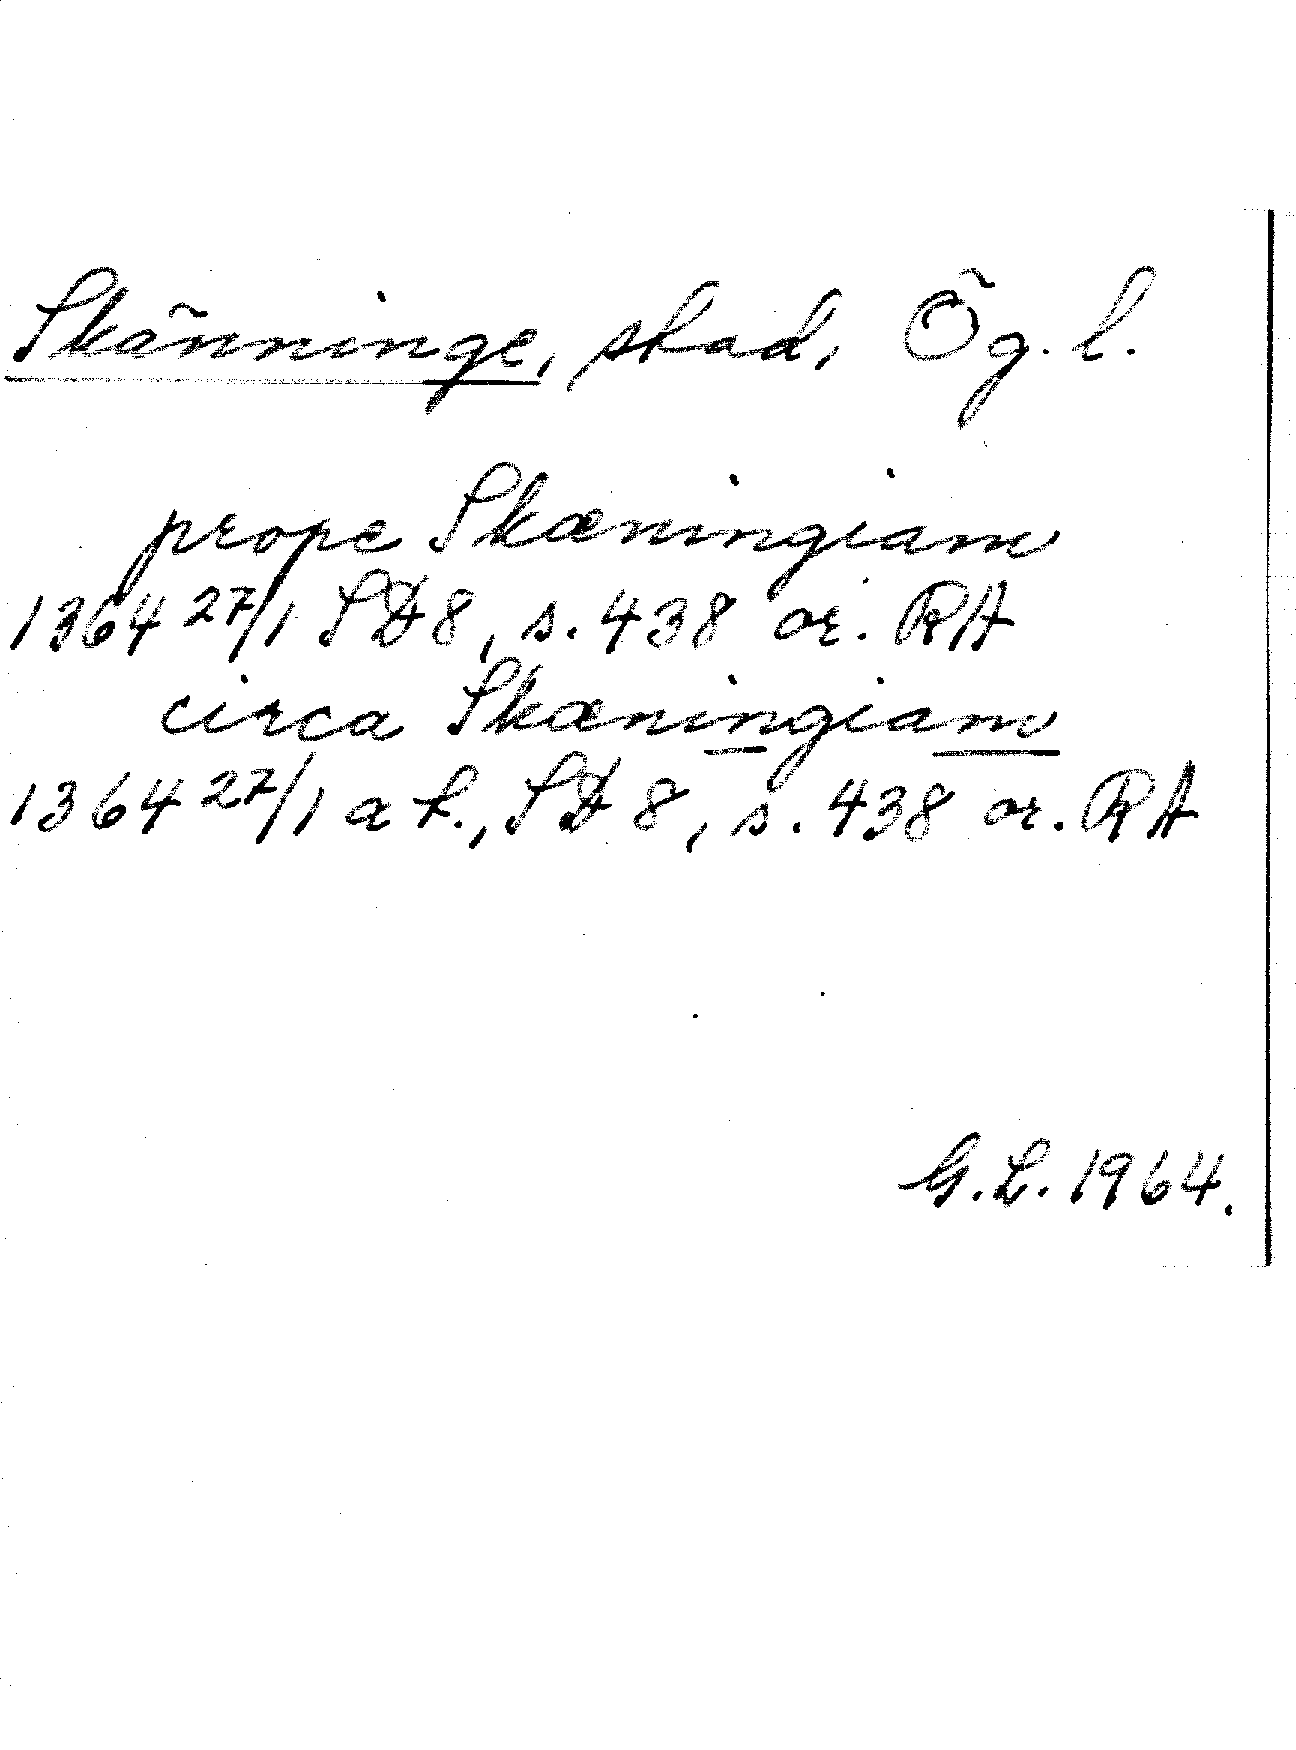 Skänninge, stad, Ög. l.
prope Skæningiam
1364 27/1 SD 8, s. 438 or. RA
circa Skæningiam
1364 27/1 a t., SD 8, s. 438 or. RA
G.L. 1964.